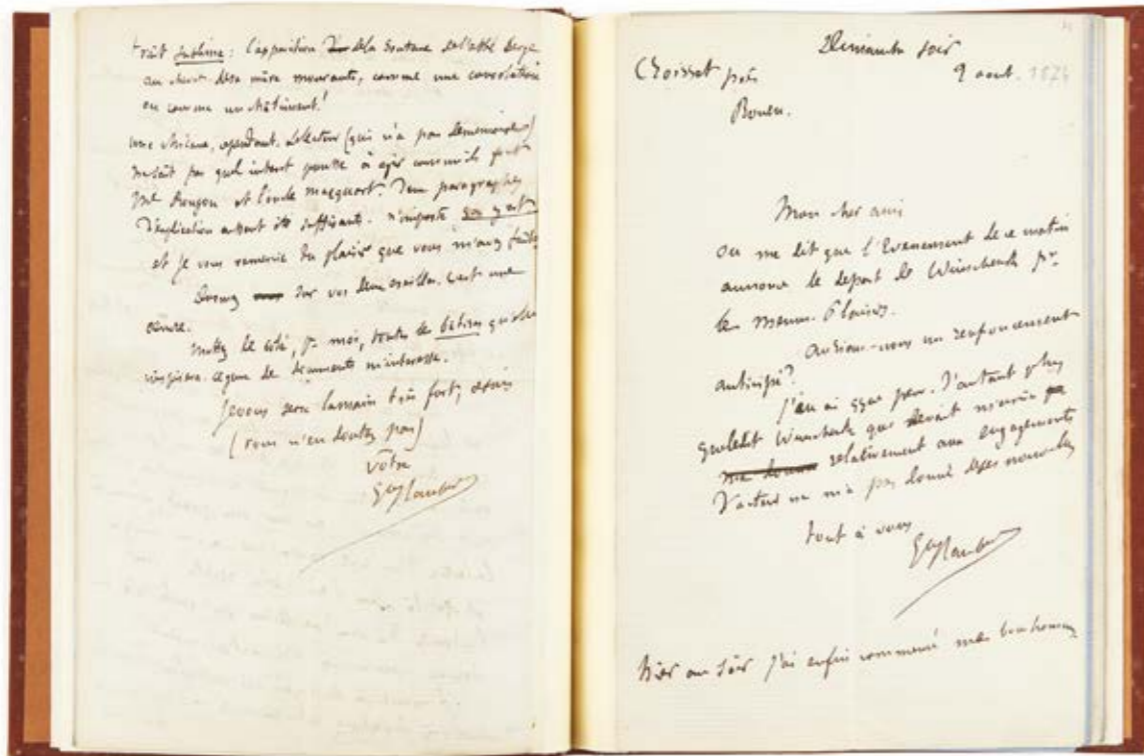 trait sublime : l'apparition de la soutane de l'abbé Serge
au chevet de sa mère mourante, comme une consolation
ou comme un châtiment !
une chicane, cependant. Le lecteur (qui n'a pas de mémoire)
ne sait pas quel intérêt pousse à agir comme ils font
Mr Rougon et l'oncle Macquart. Deux paragraphes
d'explication eussent été suffisants. N'importe
et je vous remercie du plaisir que vous m'avez fait.
Dormez sur vos deux oreilles. C'est une
œuvre.
Mettez de côté, pr moi, toutes les bêtises qu'elle
inspirera. Ce genre de documents m'intéresse.
Je vous serre la main très fort, &
(vous n'en doutez pas)
votre
Gve Flaubert
Dimanche soir
9 aout. 1874
Croisset près
Rouen.
Mon cher ami
On me dit que l'Evenement de ce matin
annonce le départ de Weinschenk pr
les Menus-Plaisirs.
Aurions-nous un renfoncement
anticipé ?
J'en ai peur. D'autant plus
que ledit Weinschenk qui devait m'écrire
relativement aux engagements
d'acteurs ne m'a pas donné de ses nouvelles
tout à vous
Gve Flaubert
Hier au soir j'ai enfin commencé mes bonshommes